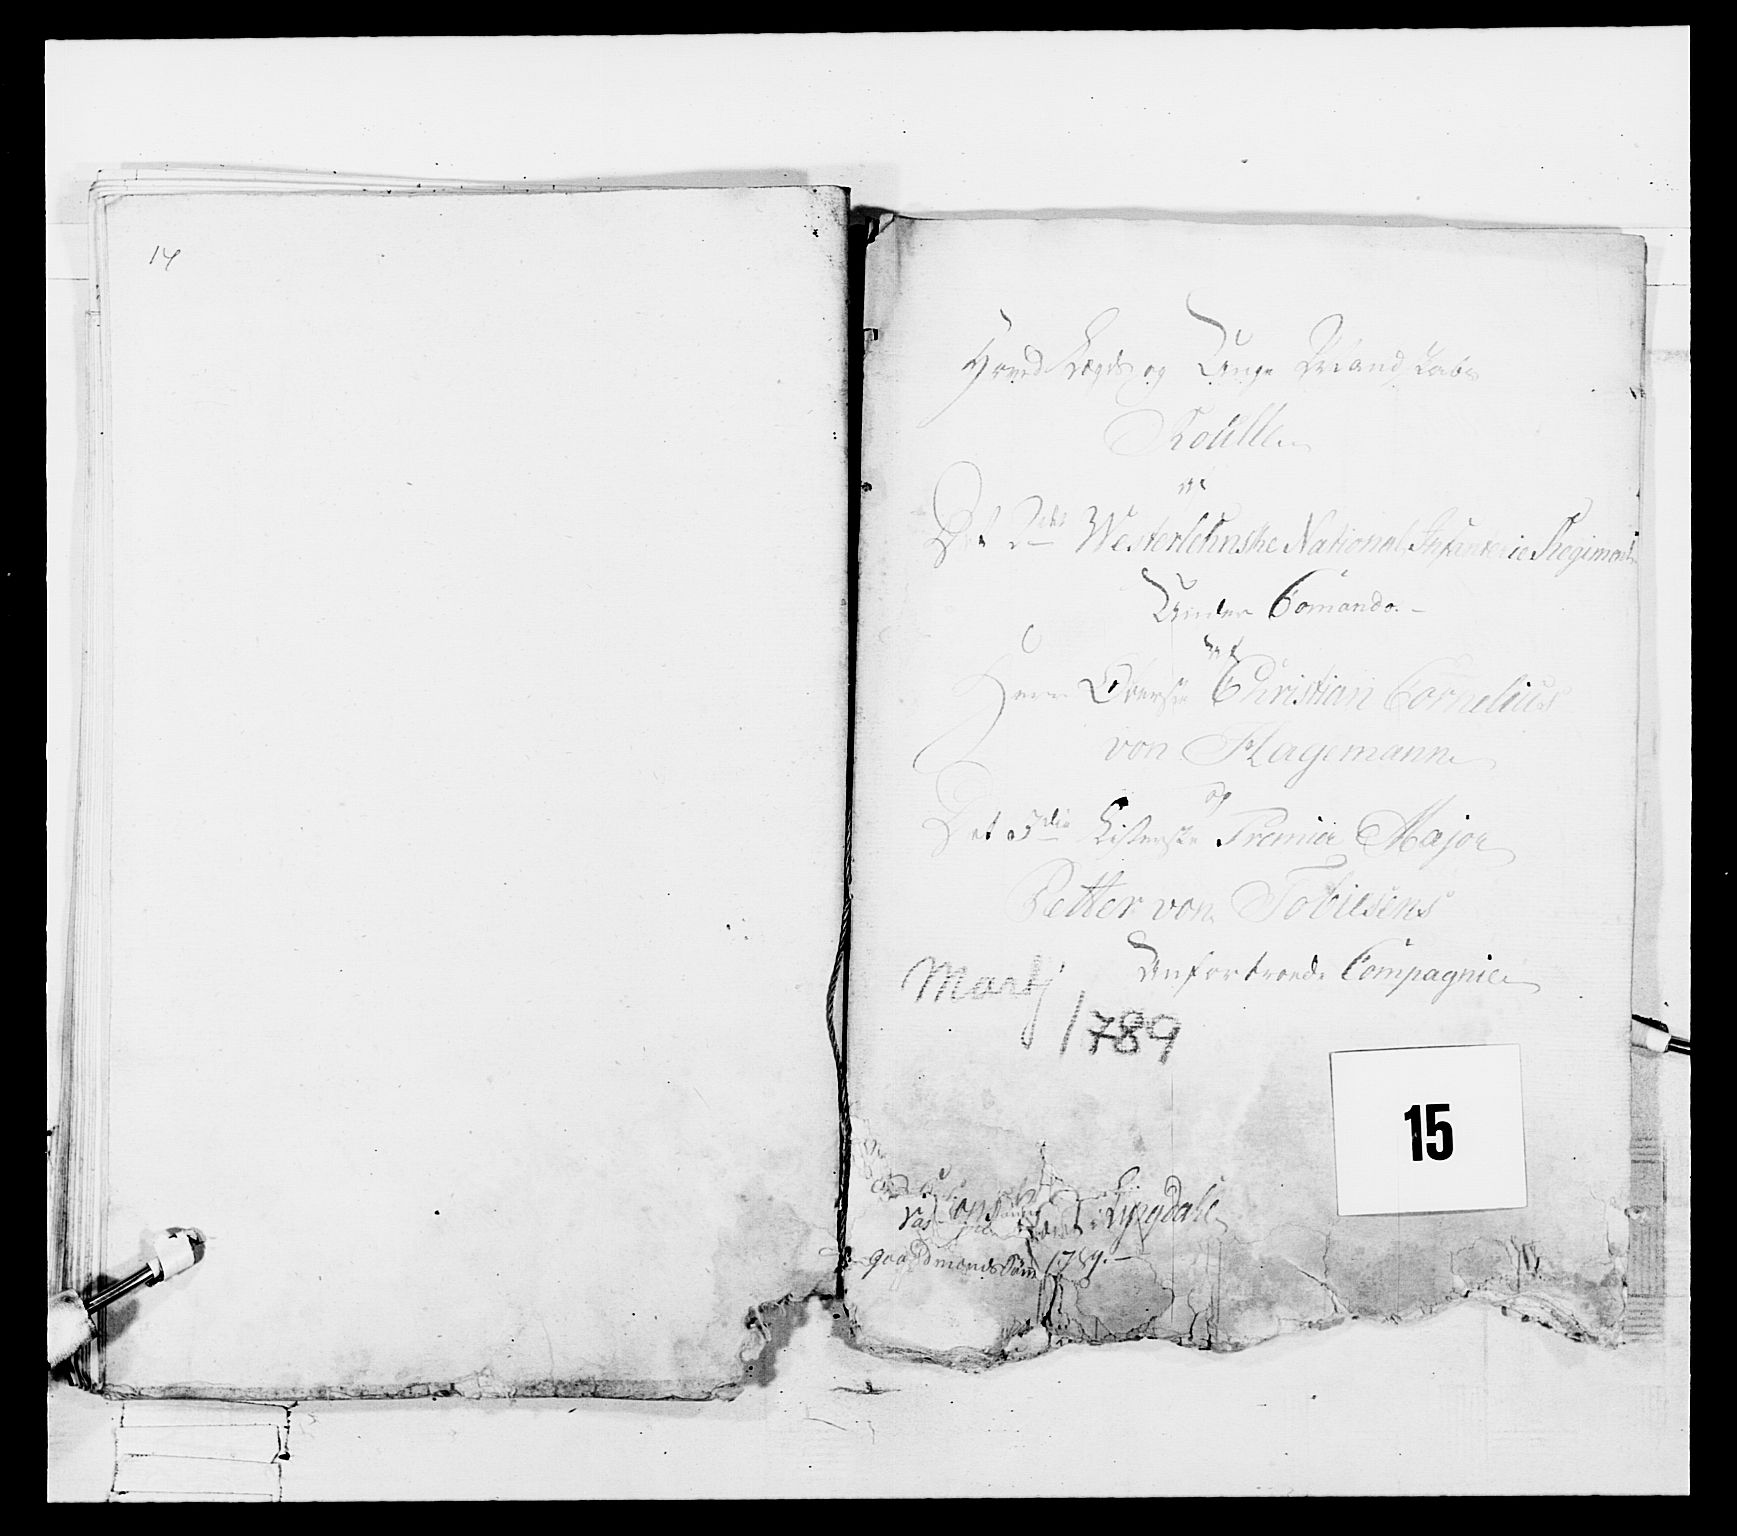 14
Hoved Lægds og Unge Mandskabs
Roulle
af
Det 2det Westerlehnske National Infanterie Regiment
Under Comando
af
Herr Oberste Christian Cornelius
von Hagemann
og
Det 3die Listerske Premier Major
Petter von Tobiesens
Anfortroede Compagnie
Martj
1789
15
Lyngdahl
1789.